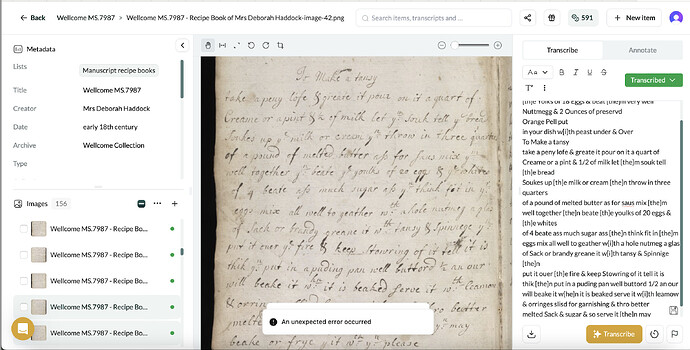 Back
Wellcome MS.7987 > Wellcome MS.7987 - Recipe Book of Mrs Deborah Haddock-image-42.png
Search items, transcripts and ...
591
+ New item
Metadata
Lists
Manuscript recipe books
Title
Wellcome MS.7987
Creator
Mrs Deborah Haddock
Date
early 18th century
Archive
Wellcome Collection
Type
Images 156
Wellcome MS.7987 - Recipe Bo...
Wellcome MS.7987 - Recipe Bo...
Wellcome MS.7987 - Recipe Bo...
Wellcome MS.7987 - Recipe Bo...
Wellcome MS.7987 - Recipe Bo...
To Make a tansy
take a peny & greate it pour on it a quart of
Creame or a pint & 1/2 of milk let ye
Soukes up ye milk or cream yn throw in three
of a pound of melted butter as for saus mix ym
well together yn beate ye youlks of 20 egg & ye whites
of 4 beate ass much sugar ass yn think fit in ye
eggs mix all well to geather wth a hole nutmeg a glas
of Sack or brandy greane it wth tansy & Spinnige yn
put it over ye fire & keep Stowring of it tell it is
thik yn put in a puding pan well butterd an our
will beake it wn it is beaked serve it wth
melted
beake or frye it wch ye please
An unexpected error occurred
Transcribe
Annotate
Aa
B I U S
Transcribed
[the] Yolks of 18 Eggs & beat [the]m very well
Nutmegg & 2 Ounces of preservd
Orange Pell put
in your dish w[i]th peast under & Over
To Make a tansy
take a peny lofe & greate it pour on it a quart of
Creame or a pint & 1/2 of milk let [the]m souk tell
[the] bread
Soukes up [the] milk or cream [the]n throw in three
quarters
of a pound of melted butter as for saus mix [the]m
well together [the]n beate [th]e youlks of 20 eggs &
[th]e whites
of 4 beate ass much sugar ass [the]n think fit in [the]m
eggs mix all well to geather w[i]th a hole nutmeg a glas
of Sack or brandy greane it w[i]th tansy & Spinnige
[the]n
put it ouer [th]e fire & keep Stowring of it tell it is
thik [the]n put in a puding pan well butterd 1/2 an our
will beake it w[he]n it is beaked serve it w[i]th leamow
& orringes slisd for garnishing & thro better
melted Sack & sugar & so serve it [the]n may
Transcribe